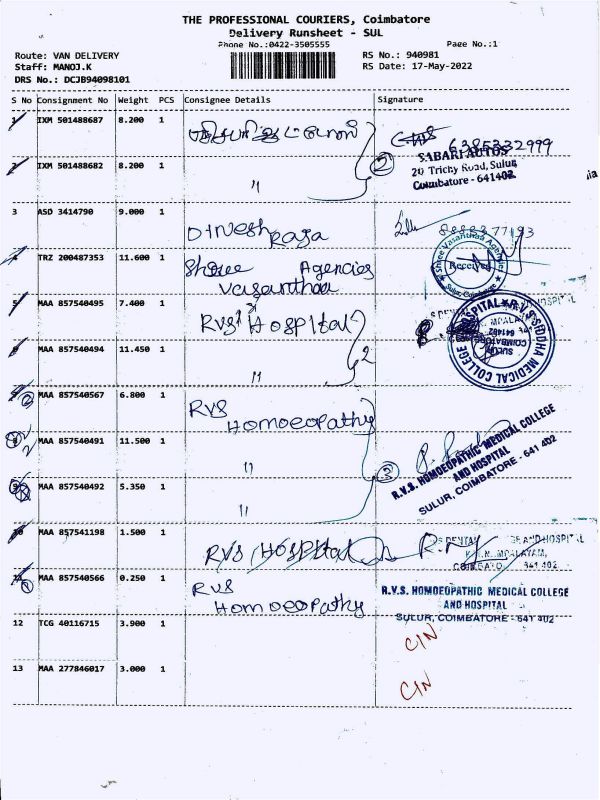 THE PROFESSIONAL COURIERS, Coimbatore
Delivery Runsheet - SUL
Phone No.:0422-3505555 Page No.:1
Route: VAN DELIVERY RS No.: 940981
Staff: MANOJ.K RS Date: 17-May-2022
DRS No.: DCJB94098101
S No Consignment No Weight PCS Consignee Details Signature
1 IXM 501488687 8.200 1
6385332999
SABARI AUTOS
20 Trichy Road, Sulur
Coimbatore - 641402
2 IXM 501488682 8.200 1 " 2
3 ASD 3414790 9.000 1 Dinesh Raja
4 TRZ 200487353 11.600 1 Shree Agencies
Vasanthaa
Shree Vasanthaa Agencies
Received
Sulur Coimbatore
5 MAA 857540495 7.400 1 RVS Hospital
R.V.S. SIDDHA MEDICAL COLLEGE HOSPITAL
SULUR
COIMBATORE
641402
6 MAA 857540494 11.450 1 " 2
7 MAA 857540567 6.800 1 RVS
Homoeopathy
8 MAA 857540491 11.500 1 " 3
R.V.S. HOMOEOPATHIC MEDICAL COLLEGE
AND HOSPITAL
SULUR, COIMBATORE - 641 402
9 MAA 857540492 5.350 1 "
10 MAA 857541198 1.500 1 RVS Hospital
11 MAA 857540566 0.250 1 RVS
Homoeopathy
R.V.S. HOMOEOPATHIC MEDICAL COLLEGE
AND HOSPITAL
SULUR, COIMBATORE - 641 402
12 TCG 40116715 3.900 1 C/N
13 MAA 277846017 3.000 1 C/N